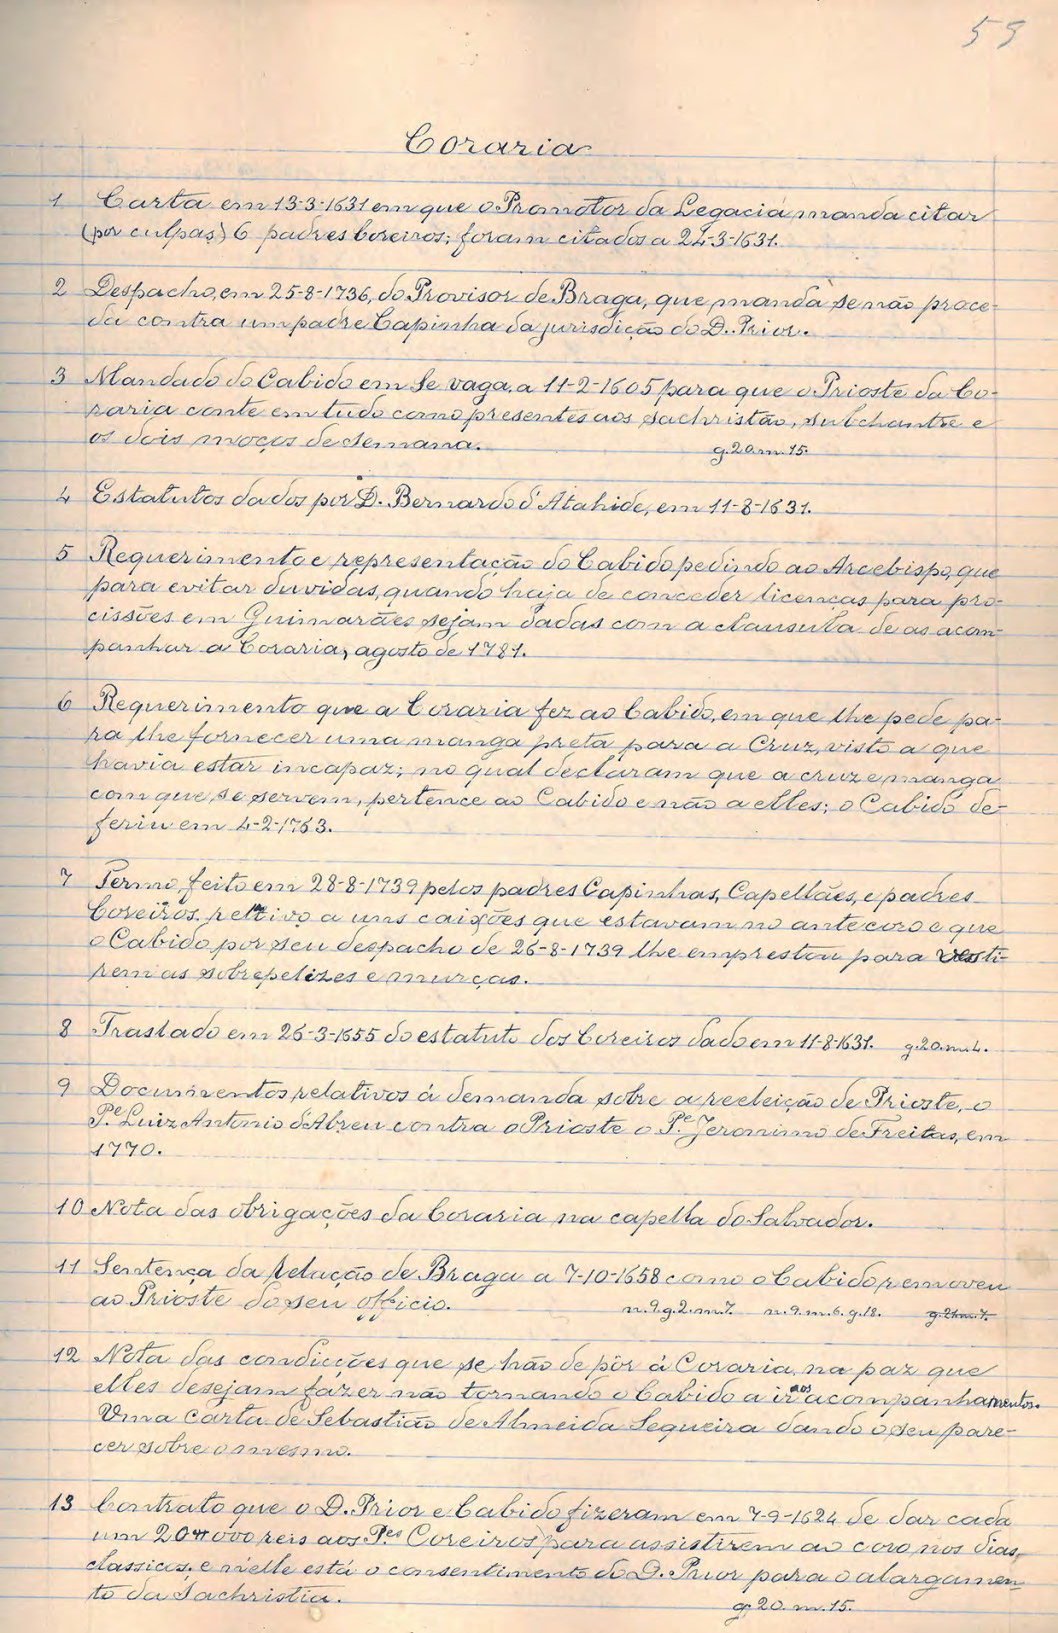 59
Coraria
1 Carta em 13-3-1631 em que o Promotor da Legacia manda citar
(por culpas) 6 padres Coreiros; foram citados a 24-3-1631.
2 Despacho, em 25-8-1736, do Provisor de Braga, que manda se não proce-
da contra um padre Capinha da jurisdição do D. Prior.
3 Mandado do Cabido em Se vaga, a 11-2-1605 para que o Prioste da Co-
raria conte em tudo como presentes aos sachristão, subchantre e
os dois moços de semana. g. 20. m. 15.
4 Estatutos dados por D. Bernardo d'Atahide, em 11-8-1631.
5 Requerimento e representação do Cabido pedindo ao Arcebispo, que
para evitar duvidas, quando haja de conceder licenças para pro-
cissões em Guimarães sejam dadas com a clausula de as acom-
panhar a Coraria, agosto de 1781.
6 Requerimento que a Coraria fez ao Cabido, em que lhe pede pa-
ra lhe fornecer uma manga preta para a Cruz, visto a que
havia estar incapaz; no qual declaram que a cruz e manga
com que se servem, pertence ao Cabido e não a elles; o Cabido de-
feriu em 4-2-1763.
7 Termo, feito em 28-8-1739 pelos padres Capinhas, Capellães, e padres
Coreiros, reltivo a uns caixões que estavam no antecoro e que
o Cabido por seu despacho de 26-8-1739 lhe emprestou para vesti-
rem as sobrepelizes e murças.
8 Traslado em 26-3-1655 do estatuto dos Coreiros dado em 11-8-1631. g. 20. m. 4.
9 Documentos relativos á demanda sobre a reeleição de Prioste, o
P.e Luiz Antonio d'Abreu contra o Prioste o P.e Jeronimo de Freitas, em
1770.
10 Nota das obrigações da Coraria na capella do Salvador.
11 Sentença da Relação de Braga a 7-10-1658 como o Cabido removeu
ao Prioste do seu officio. n. 9. g. 2. m. 7. n. 9. m. 6. g. 18. g. 21. m. 7.
12 Nota das condicções que se hão de pôr á Coraria, na paz que
elles desejam fazer não tornando o Cabido a ir aos acompanhamentos.
Uma carta de Sebastião de Almeida Sequeira dando o seu pare-
cer sobre o mesmo.
13 Contrato que o D. Prior e Cabido fizeram em 7-9-1624 de dar cada
um 20#000 reis aos P.es Coreiros para assistirem ao coro nos dias
classicos, e n'elle está o consentimento do D. Prior para o alargamen-
to da Sachristia. g. 20. m. 15.